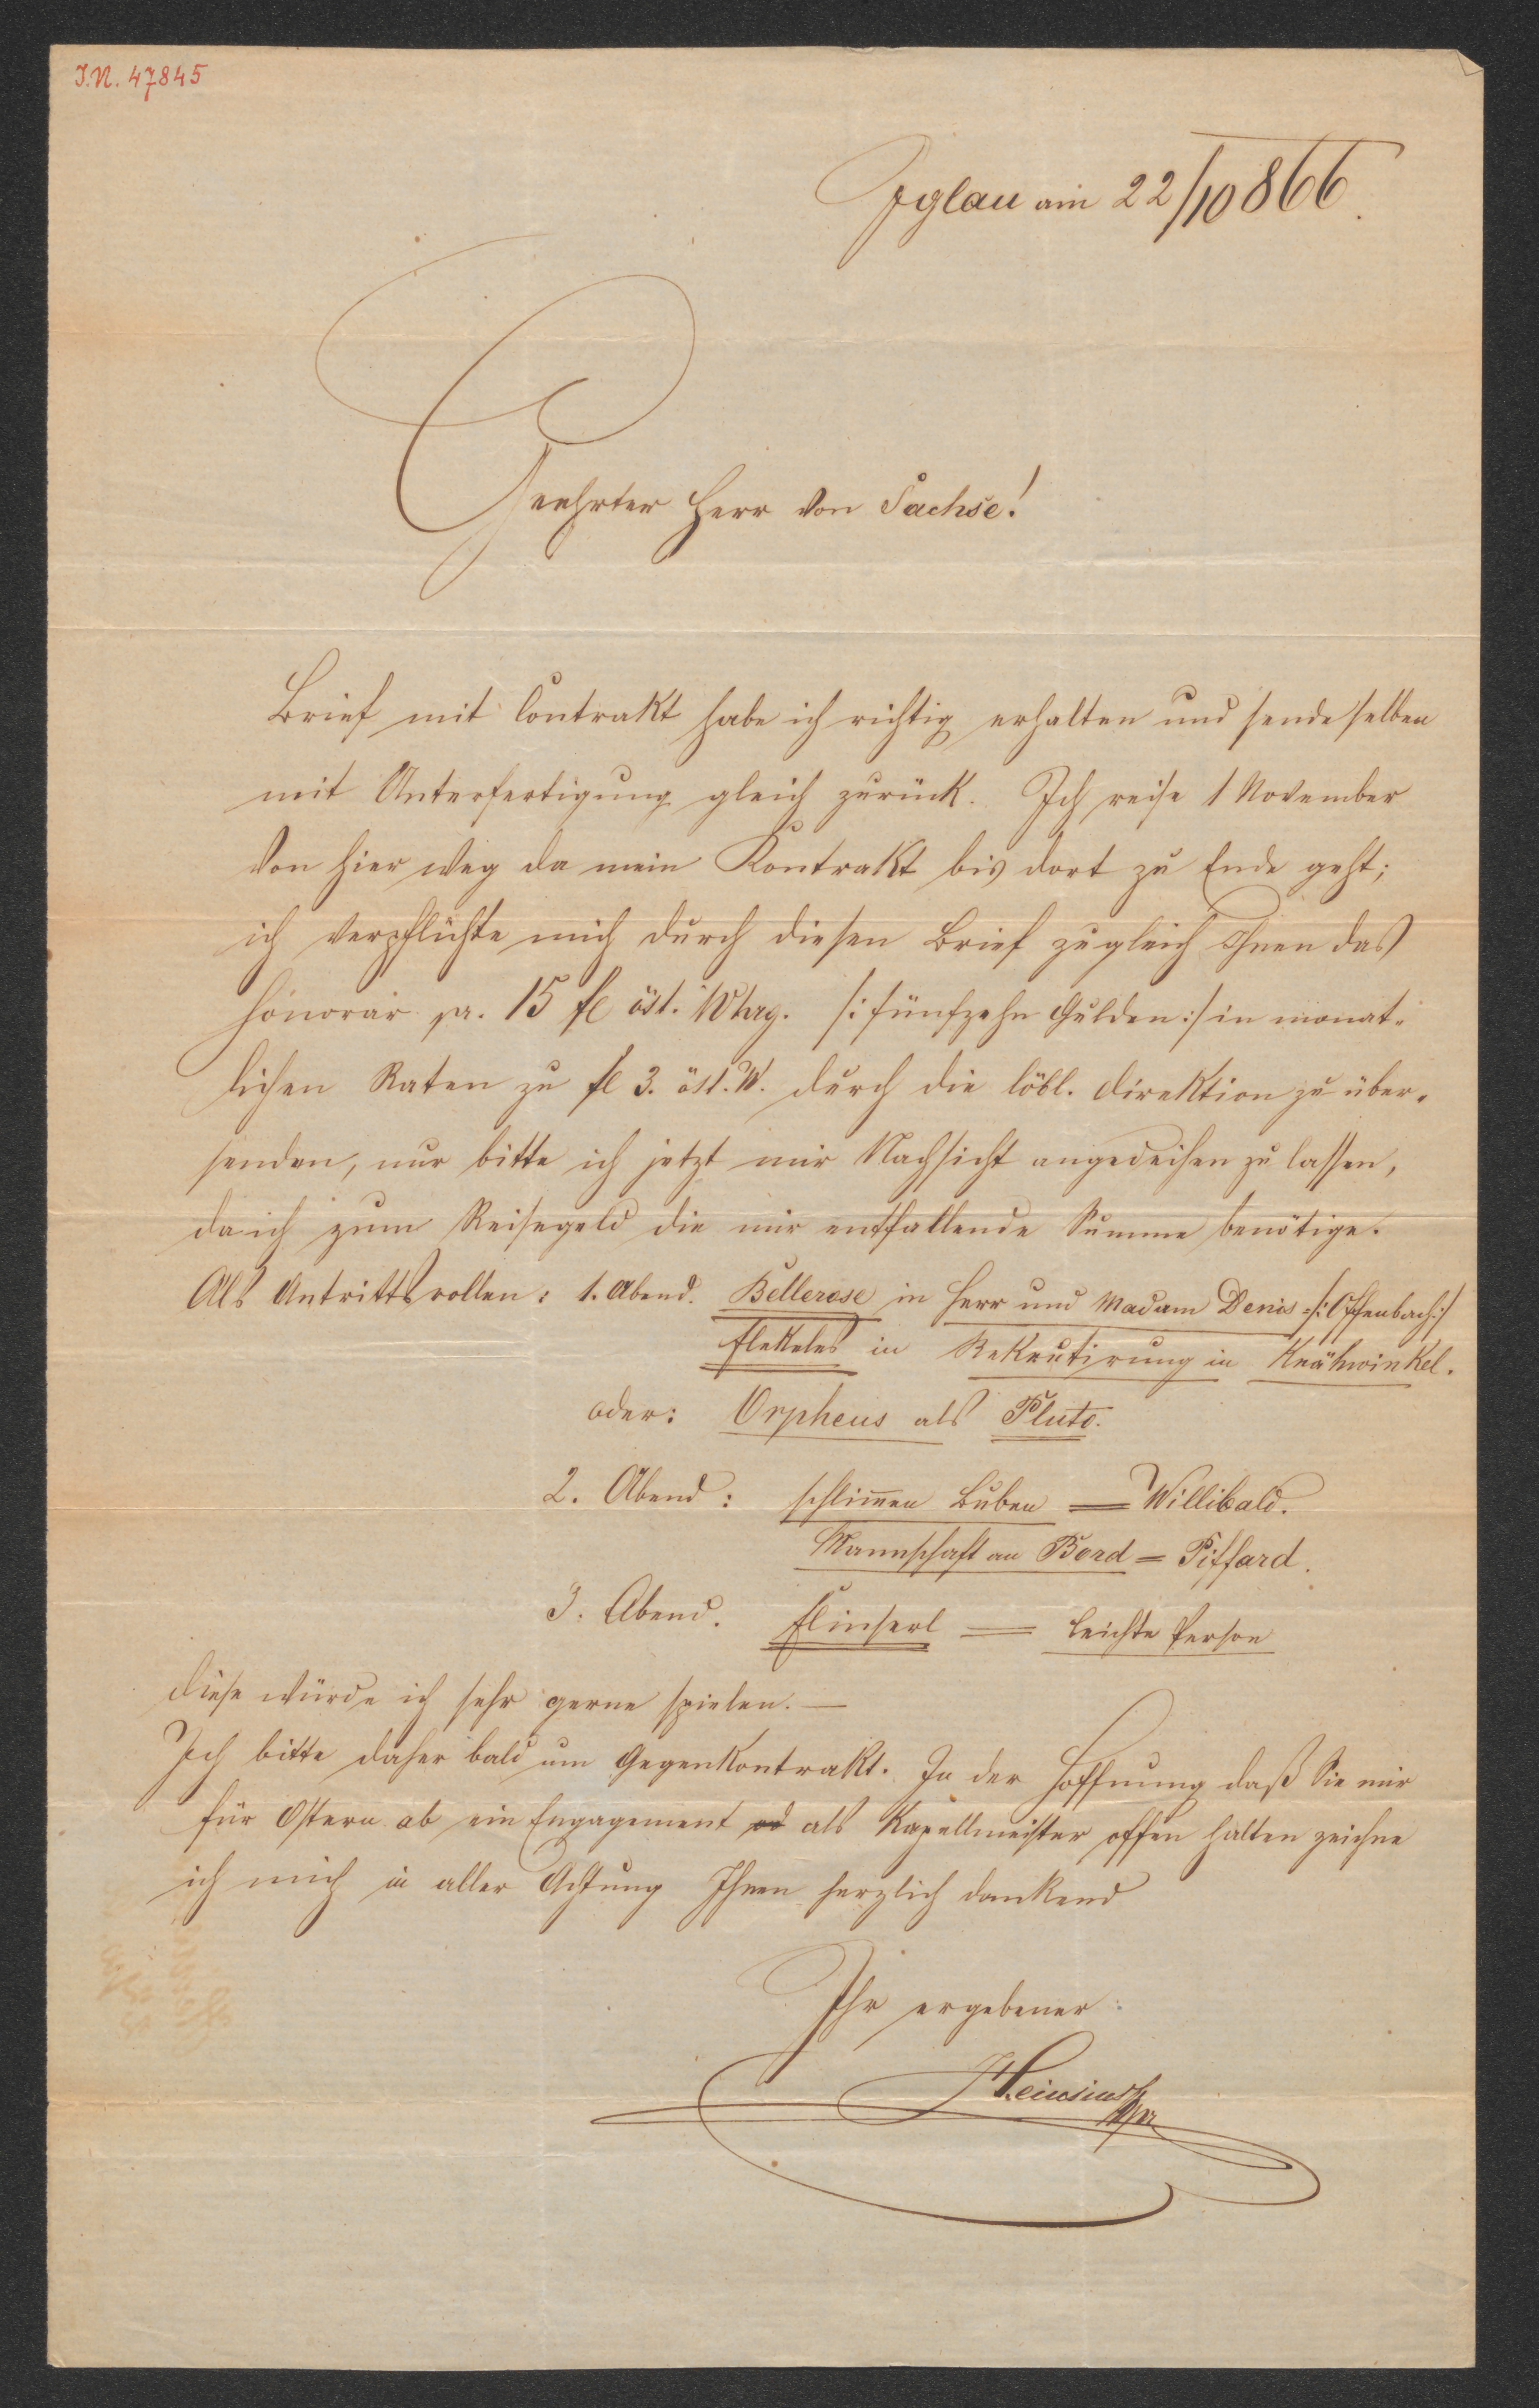 I.N. 47845
Iglau am 22/10 866.
Geehrter Herr von Sachse!
Brief mit Contrakt habe ich richtig erhalten und sende selben
mit Unterfertigung gleich zurück. Ich reise 1 November
von hier weg da mein Kontrakt bis dort zu Ende geht;
ich verpflichte mich durch diesen Brief zugleich Ihnen das
Honorar pr. 15 fl öst. Whrg. /: fünfzehn Gulden :/ in monat-
lichen Raten zu fl 3. öst. W. durch die löbl. Direktion zu über-
senden, nur bitte ich jetzt mir Nachsicht angedeihen zu lassen,
da ich zum Reisegeld die mir entfallende Summe benötige.
Als Antrittsrollen: 1. Abend. Bellerose in Herr und Madam Denis /: Offenbach :/
Flekeles in Rekrutirung in Krähwinkel.
oder: Orpheus als Pluto.
2. Abend: schlimen Buben = Willibald.
Mannschaft an Bord = Piffard.
3. Abend. Flinserl = leichte Person
diese würde ich sehr gerne spielen. —
Ich bitte daher bald um Gegenkontrakt. In der Hoffnung daß Sie mir
für Ostern ab ein Engagement als Kapellmeister offen halten zeichne
ich mich in aller Achtung Ihnen herzlich dankend
Ihr ergebener: